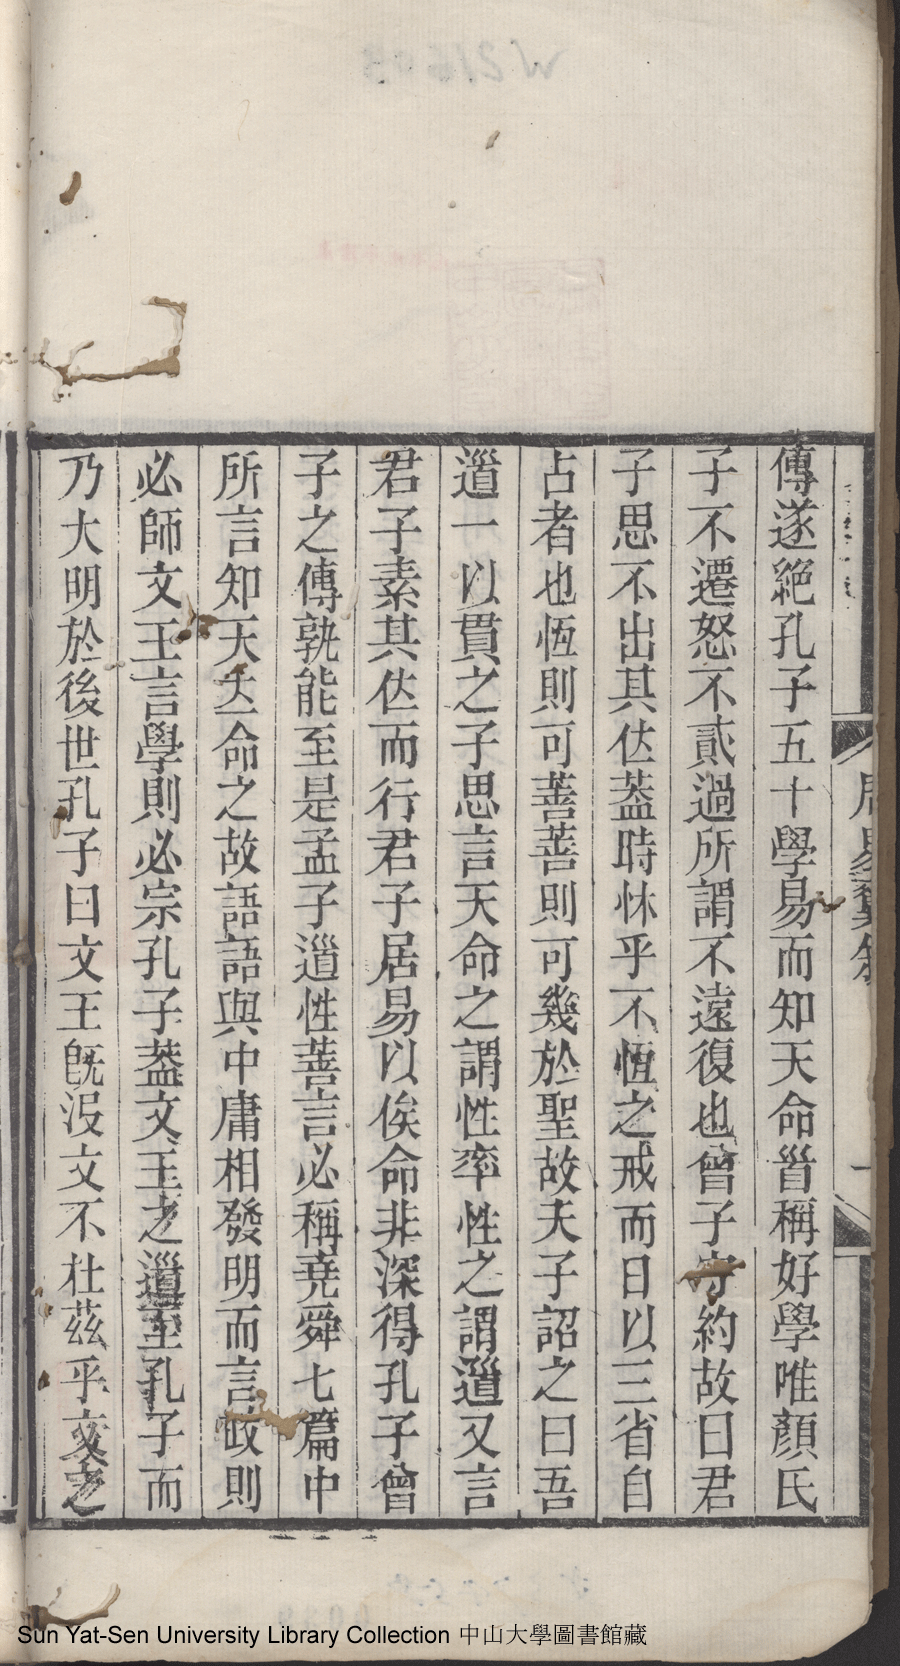 傳遂絶孔子五十學易而知天命首稱好學唯顏氏
子不遷怒不貳過所謂不遠復也曾子守約故曰君
子思不出其位葢時怵乎不恆之戒而日以三省自
占者也恆則可善善則可幾於聖故夫子詔之曰吾
道一以貫之子思言天命之謂性率性之謂道又言
君子素其位而行君子居易以俟命非深得孔子曾
子之傳孰能至是孟子道性善言必稱堯舜七篇中
所言知天立命之故語語與中庸相發明而言政則
必師文王言學則必宗孔子葢文王之道至孔子而
乃大明於後世孔子曰文王旣沒文不在茲乎文之
Sun Yat-Sen University Library Collection 中山大學圖書館藏